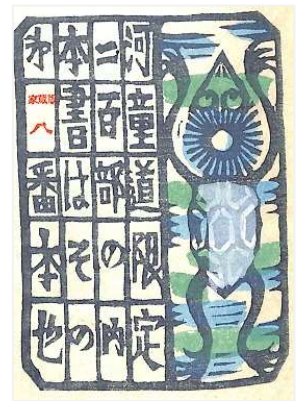 河童道限定
二百部の内
本書はその
㐧八番本也